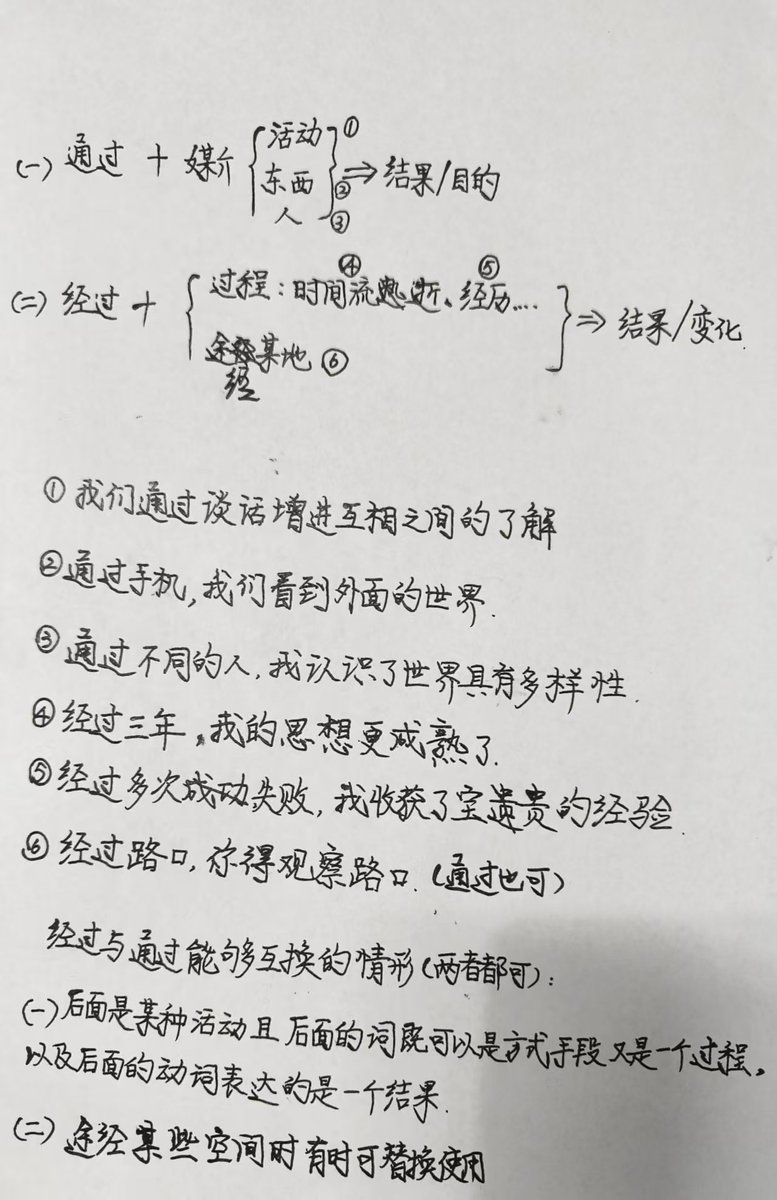 (一) 通过 + 媒介 { 活动① 东西② 人③ } ⇒ 结果/目的
(二) 经过 + { 过程:时间流逝④、经历⑤…… 途经某地⑥ } ⇒ 结果/变化.
① 我们通过谈话增进互相之间的了解
② 通过手机,我们看到外面的世界.
③ 通过不同的人,我认识了世界具有多样性.
④ 经过三年,我的思想更成熟了.
⑤ 经过多次成功失败,我收获了宝贵的经验.
⑥ 经过路口,你得观察路口.(通过也可)
经过与通过能够互换的情形(两者都可):
(一) 后面是某种活动且后面的词既可以是方式手段又是一个过程,
以及后面的动词表达的是一个结果.
(二) 途经某些空间时有时可替换使用